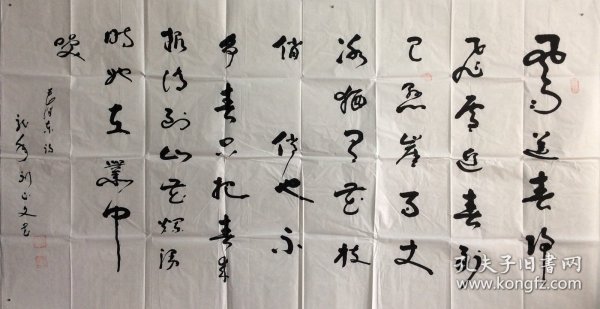 风雨送春归
飞雪迎春到
已悬崖百丈
冰犹有花枝
俏 俏也不
争春只把春来
报待到山花烂漫
时她在丛中
笑
毛泽东诗
孔夫子旧书网
www.kongfz.com